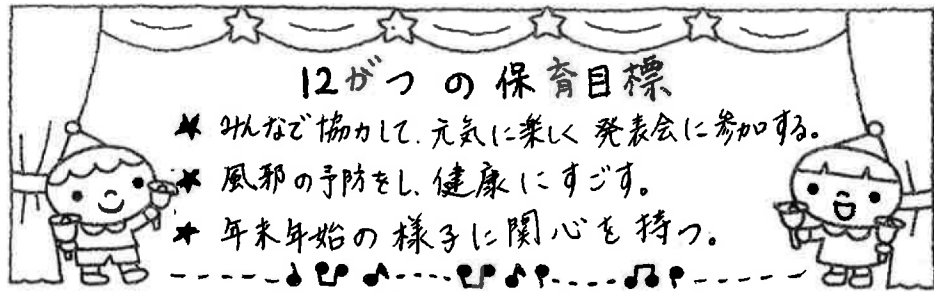 12がつの保育目標
★ みんなで協力して、元気に楽しく発表会に参加する。
★ 風邪の予防をし、健康にすごす。
★ 年末年始の様子に関心を持つ。